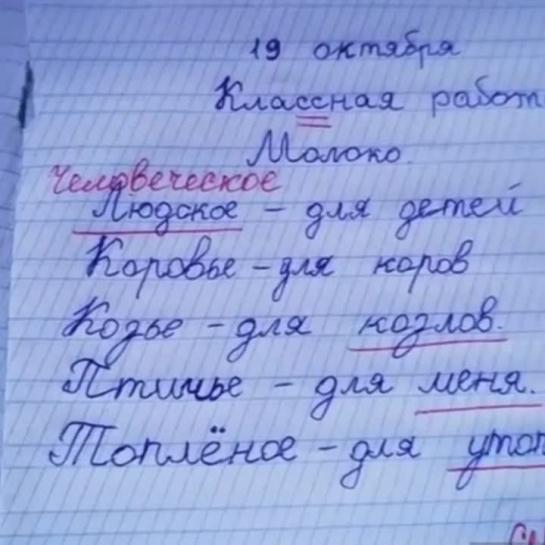 19 октября
Классная работ
Молоко.
Человеческое
Людское – для детей
Коровье – для коров
Козье – для козлов.
Птичье – для меня.
Топлёное – для утоп